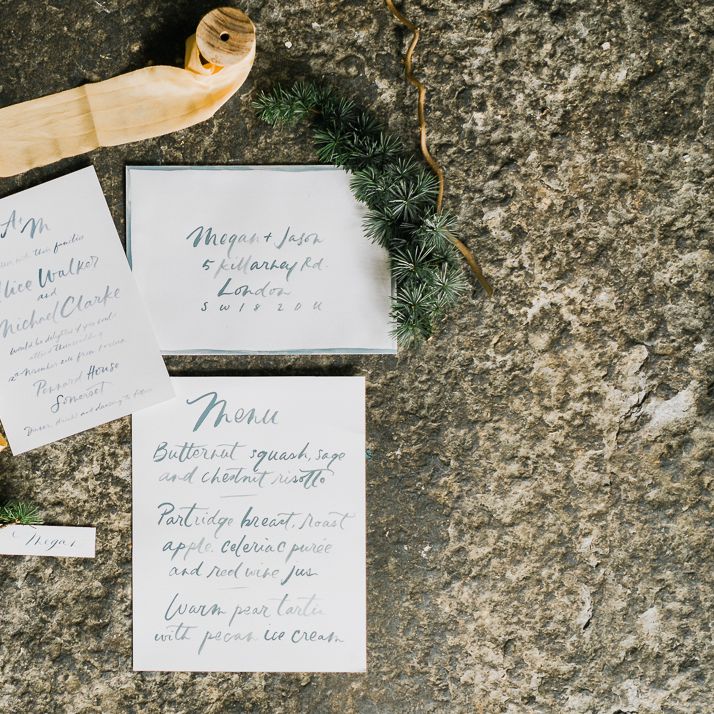 A + M
with their families
Alice Walker
and
Michael Clarke
would be delighted if you could
attend
12th November
Pennard House
Somerset
Dinner, drinks and dancing to follow
Megan + Jason
5 Killarney Rd.
London
SW18 2DU
Menu
Butternut squash, sage
and chestnut risotto
Partridge breast, roast
apple, celeriac purée
and red wine jus
Warm pear tartin
with pecan ice cream
Megan